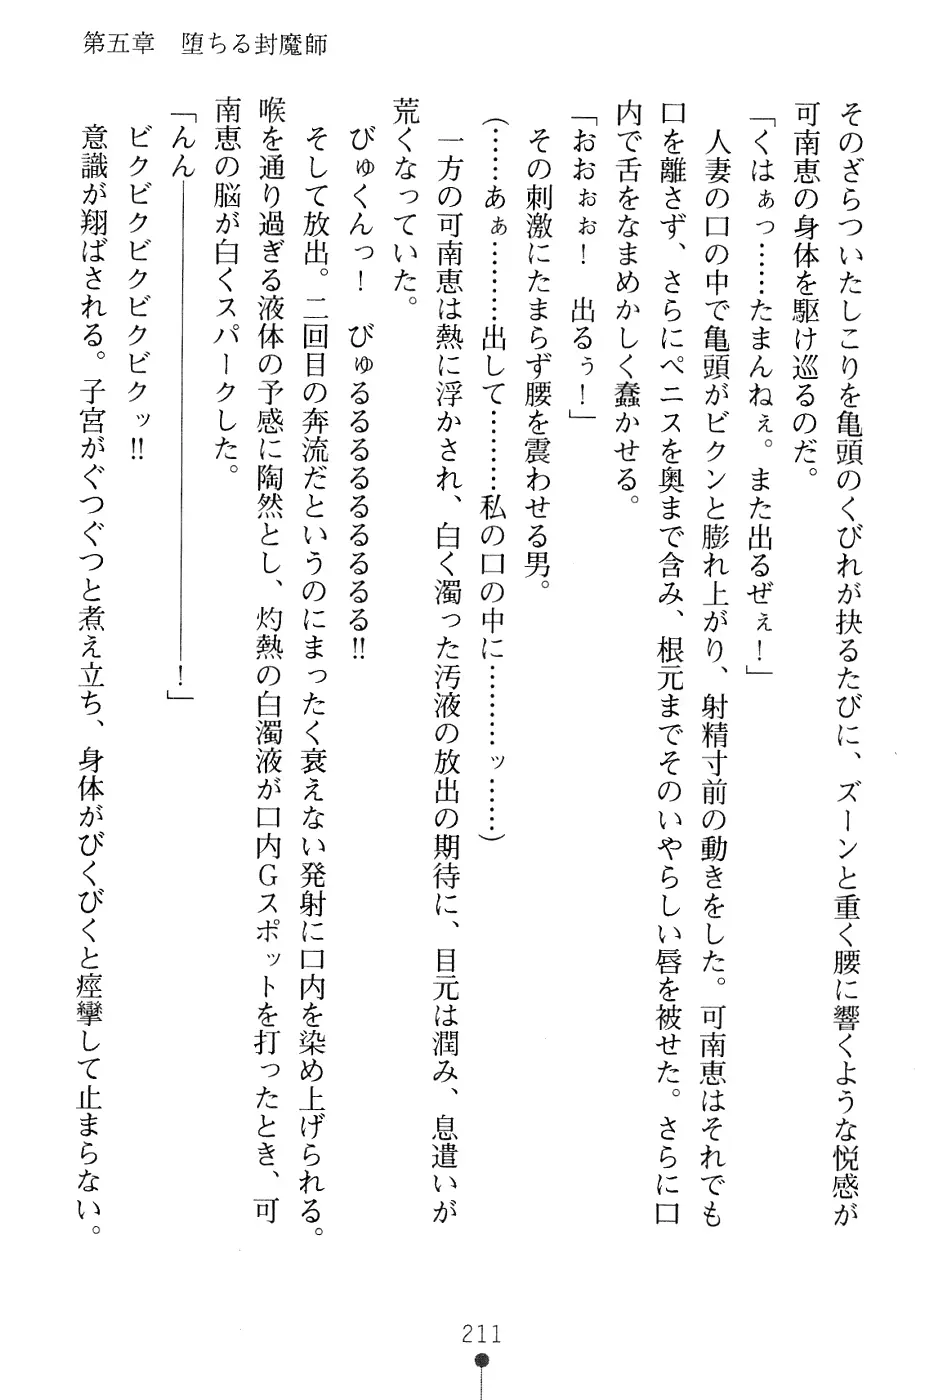 第五章　堕ちる封魔師
そのざらついたしこりを亀頭のくびれが抉るたびに、ズーンと重く腰に響くような悦感が
可南恵の身体を駆け巡るのだ。
「くはぁっ……たまんねぇ。また出るぜぇ！」
人妻の口の中で亀頭がビクンと膨れ上がり、射精寸前の動きをした。可南恵はそれでも
口を離さず、さらにペニスを奥まで含み、根元までそのいやらしい唇を被せた。さらに口
内で舌をなまめかしく蠢かせる。
「おおぉぉ！　出るぅ！」
その刺激にたまらず腰を震わせる男。
（……あぁ…………出して…………私の口の中に…………ッ……）
一方の可南恵は熱に浮かされ、白く濁った汚液の放出の期待に、目元は潤み、息遣いが
荒くなっていた。
びゅくんっ！　びゅるるるるるるるる!!
そして放出。二回目の奔流だというのにまったく衰えない発射に口内を染め上げられる。
喉を通り過ぎる液体の予感に陶然とし、灼熱の白濁液が口内Ｇスポットを打ったとき、可
南恵の脳が白くスパークした。
「んん――――――――――――――――！」
ビクビクビクビクビクッ!!
意識が翔ばされる。子宮がぐつぐつと煮え立ち、身体がびくびくと痙攣して止まらない。
211